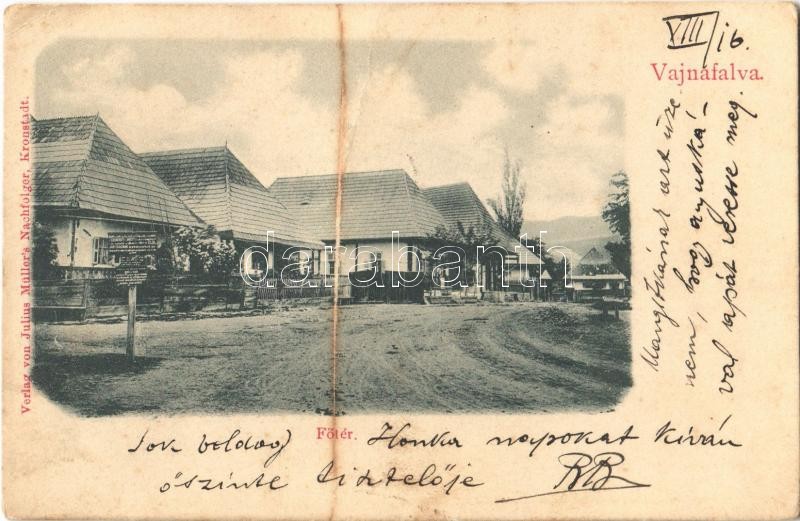 VIII/16.
Vajnafalva.
Verlag von Julius Müller's Nachfolger, Kronstadt.
azt üze
nem, hogy anyuská-
val apát vezesse meg.
darabanth
Főtér.
Sok boldog Ilonka napokat kíván
őszinte tisztelője
RB